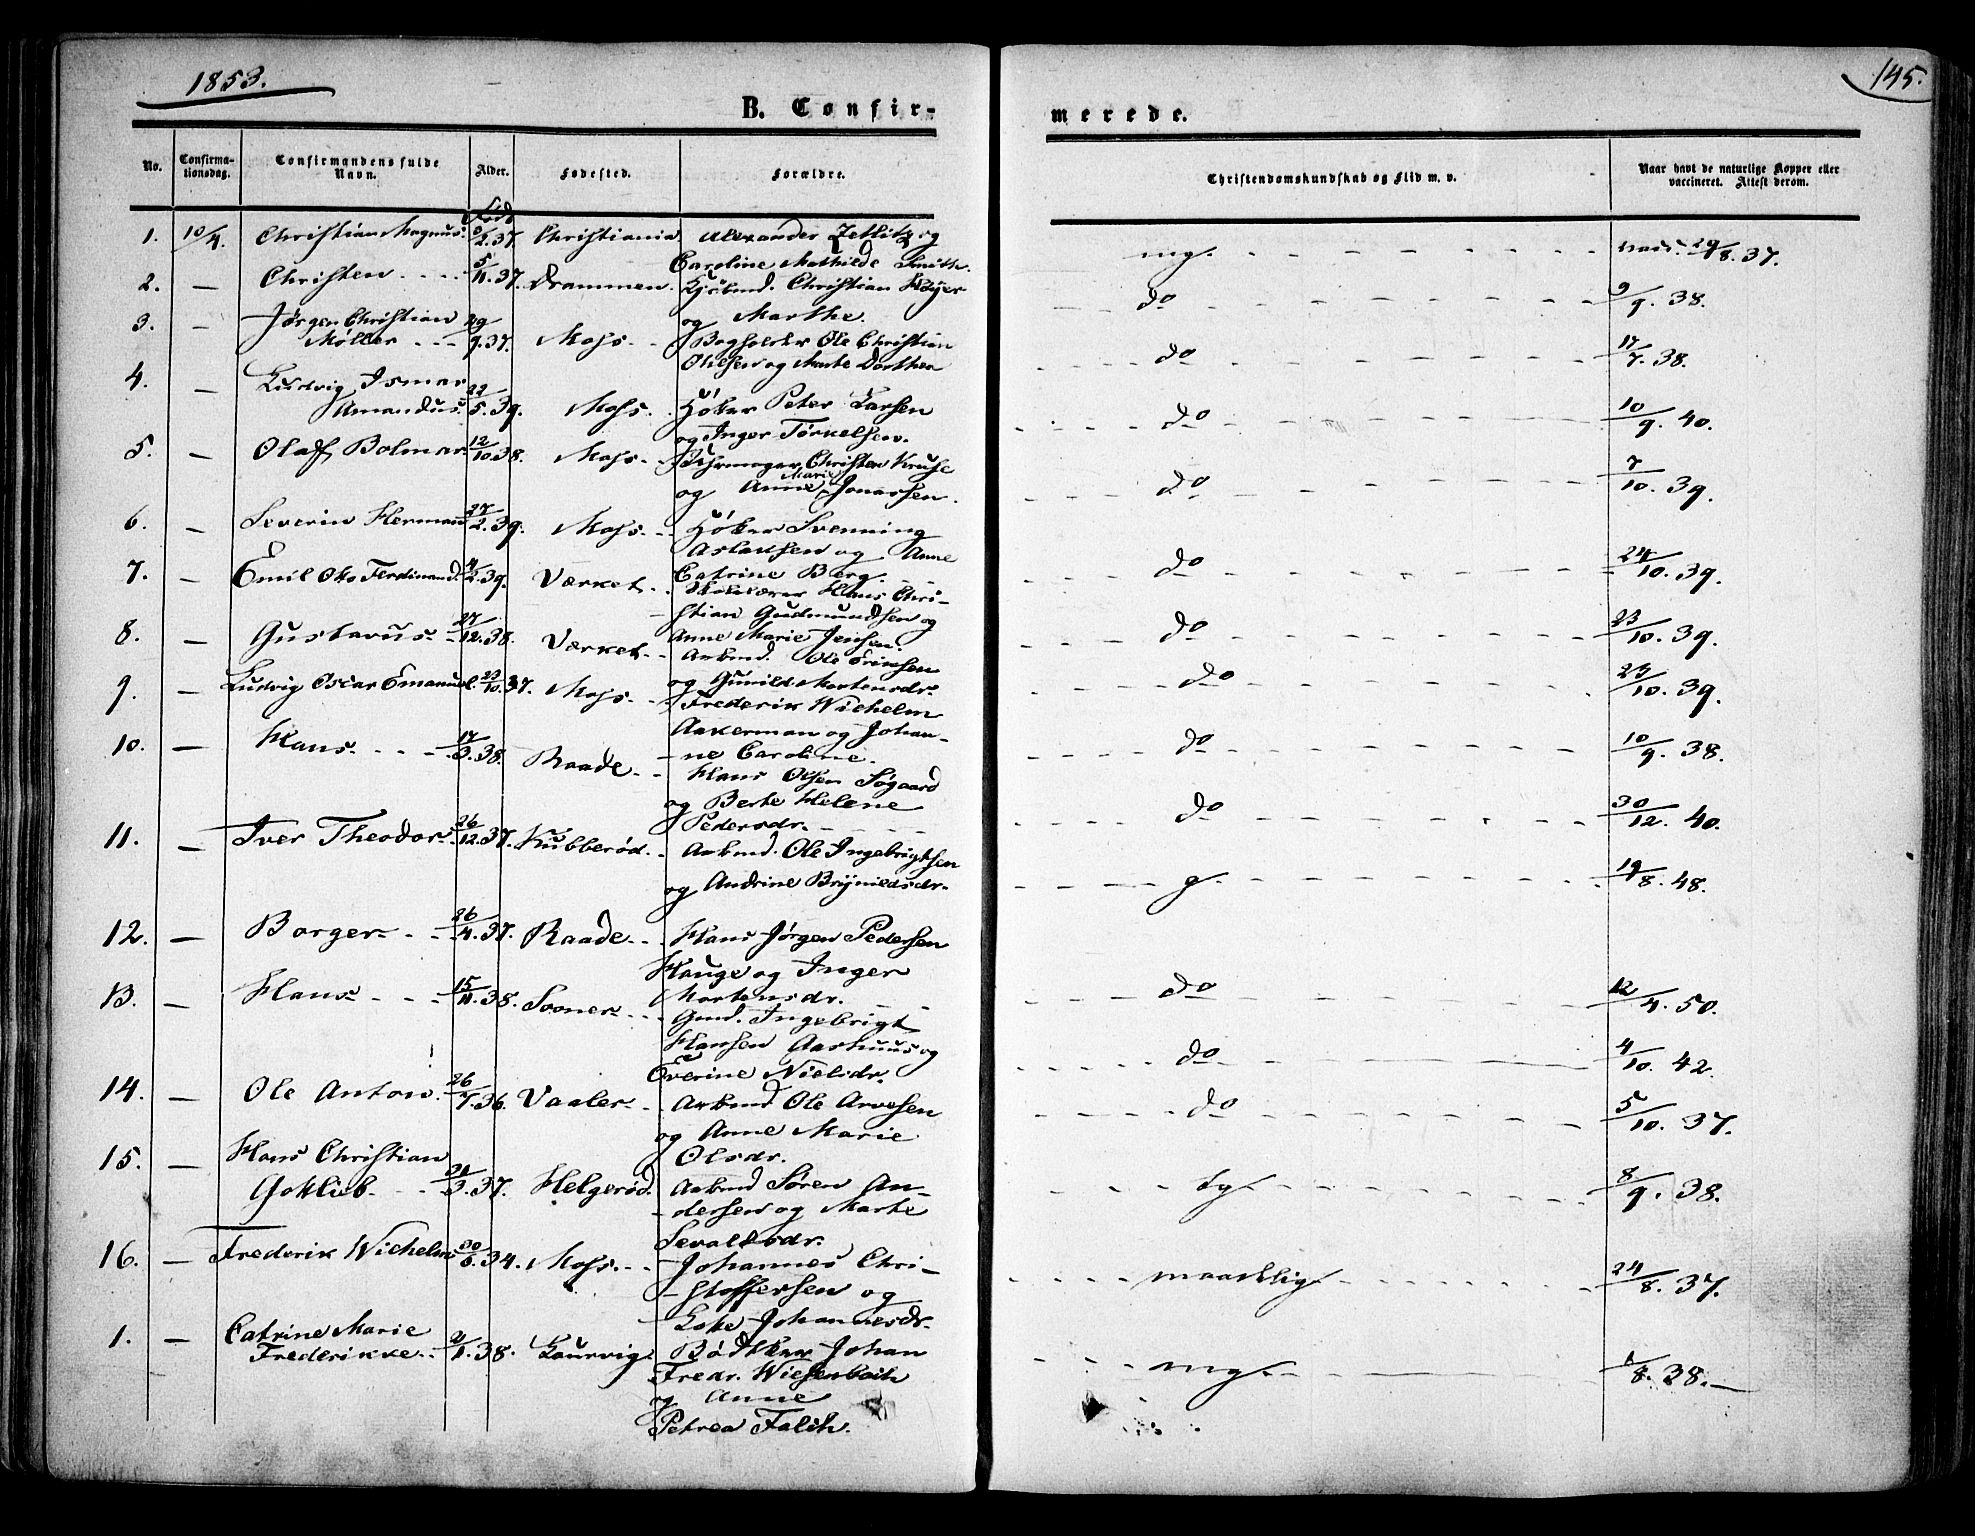 1853.
145.
B. Confir-
merede.
No.
Confirma-
tionsdag.
Confirmandens fulde
Navn.
Alder.
Fødested.
Forældre.
Christendomskundskab og Flid m. v.
Naar havt de naturlige Kopper eller
vaccineret. Attest derom.
Født
1. 10/4. Christian Magnus. 2.37. Christiania Alexander Zetlitz og
Caroline Mathilde Smith.
mg. 29/8.37.
2. — Christen 5/11.37. Drammen. Kjøbmd. Christian Høyer
og Marthe.
do 9/9. 38.
3. — Jørgen Christian
Møller 29/9.37. Moss. Bogholder Ole Christian
Olilsen og Marte Dorthea
do 17/7. 38.
4. — Ludvig Ismar
Amandus. 22/5.39. Moss. Høker Peter Larsen
og Inger Torkelsen.
do 10/9. 40.
5. — Olaf Bolmar 12/10.38. Moss. Uhrmager Christen Kruse
og Anne Marie Jonassen.
do 7/10. 39.
6. — Severin Herman 27/2.39. Moss. Høker Svenning
Aslaksen og Anne
Catrine Berg.
do 24/10. 39.
7. — Emil Oto Ferdinand. 4/2.39. Værket. Skolelærer Hans Chri-
stian Gudmundsen og
Anne Marie Jensen.
do 23/10. 39.
8. — Gustavus 27/12.38. Værket. Arbmd. Ole Eriksen
og Gunild Mortensdr.
do 23/10. 39.
9. — Ludvig Oscar Emanuel. 23/10.37. Moss. Frederik Wilhelm
Aakerman og Johan-
ne Caroline.
do 10/9. 38.
10. — Hans 17/3.38. Raade Hans Olsen Søgaard
og Berte Helene
Pedersdr.
do 30/12. 40.
11. — Iver Theodor 26/12.37. Kubberød. Arbmd. Ole Ingebrigtsen
og Andrine Brynildsdr.
g. 19/8. 48.
12. — Borger 26/4.37. Raade Hans Jørgen Pedersen
Hauge og Inger
Mortensdr.
do 12/4. 50.
13. — Hans 15/11.38. Sooner Gmd. Ingebrigt
Hansen Aarhuus og
Everine Nielsdr.
do 4/10. 42.
14. — Ole Anton. 26/7.36. Vaaler Arbmd Ole Arvesen
og Anne Marie
Olsdr.
do 5/10. 37.
15. — Hans Christian
Gotlieb 3.37. Helgerød. Arbmd Søren An-
dersen og Marte
Sevaldsdr.
tg. 8/9. 38.
16. — Frederik Wilhelm 30/6.34. Moss. Johannes Chri-
stoffersen og
Johannesdr.
maadelig 24/8. 37.
1. — Catrine Marie
Frederikke 2/1.38. Laurvig. Bødtker Johan
Fredr. Wiesenbach
og Anne
Petrea Falch.
mg. 1/8. 38.